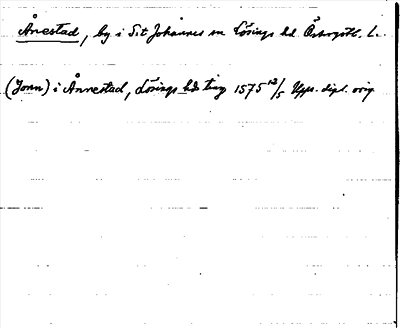 Ånestad, by i S:t Johannes sn Lösings hd Östergötl. L.
(Jonn) i Ånnestad, Lösings hds ting 1575 12/5 Upps. dipl. orig.